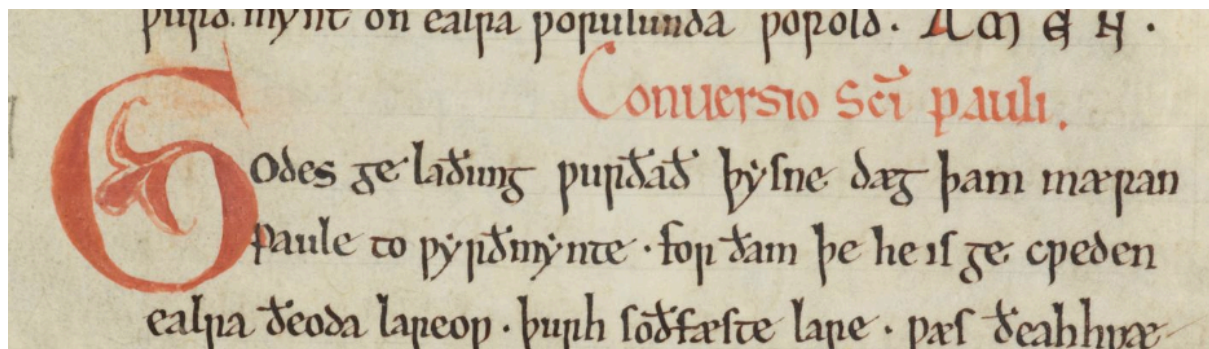 ƿurð.mẏnt on ealra ƿorulunda ƿorold. AMEN.
Conuersio sc̄i pauli.
Godes ge laðung ƿurðað þẏſne dæg þam mæran
Paule to ƿẏrðmẏnte · for ðam þe he iſ ge cƿeden
ealra ðeoda lareoƿ · þurh ſoðfæſte lare · ƿæſ ðeahhƿæ-